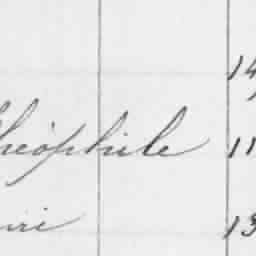 14
Théophile 11
13